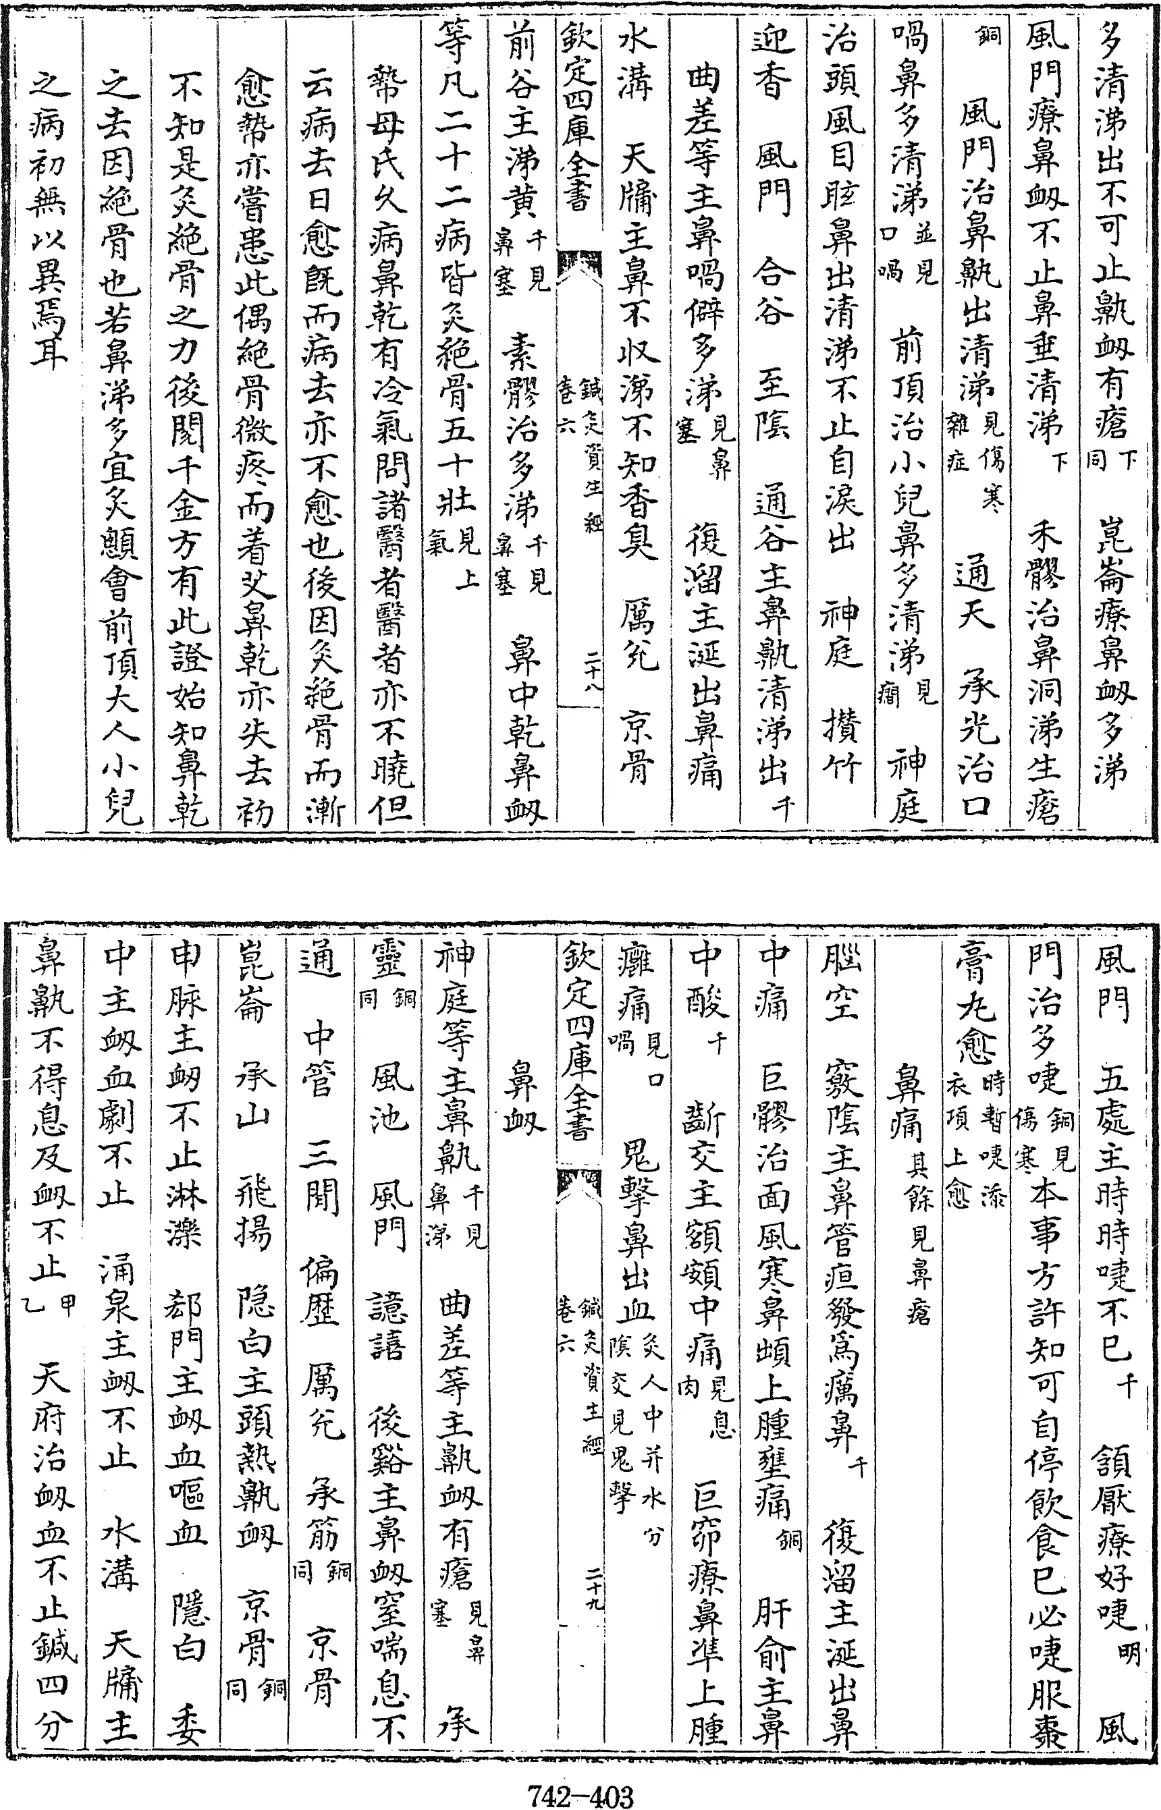 多清涕出不可止鼽衄有瘡下同 崑崙療鼻衄多涕
風門療鼻衄不止鼻垂清涕下 禾髎治鼻洞涕生瘡
銅 風門治鼻鼽出清涕見傷寒雜症 通天 承光治口
喎鼻多清涕並見口喎 前頂治小兒鼻多清涕見癎 神庭
治頭風目眩鼻出清涕不止自淚出 神庭 攅竹
迎香 風門 合谷 至隂 通谷主鼻鼽清涕出千
曲差等主鼻喎僻多涕見鼻塞 復溜主涎出鼻痛
水溝 天牖主鼻不收涕不知香臭 厲兊 京骨
欽定四庫全書 鍼灸資生經卷六 二十八
前谷主涕黄千見鼻塞 素髎治多涕千見鼻塞 鼻中乾鼻衄
等凡二十二病皆灸絶骨五十壯見上氣
執母氏久病鼻乾有冷氣問諸醫者醫者亦不曉但
云病去日愈既而病去亦不愈也後因灸絶骨而漸
愈執亦嘗患此偶絶骨微疼而着艾鼻乾亦失去初
不知是灸絶骨之力後閲千金方有此證始知鼻乾
之去因絶骨也若鼻涕多宜灸顖會前頂大人小兒
之病初無以異焉耳
風門 五處主時時嚏不已千 頷厭療好嚏明 風
門治多嚏銅見傷寒本事方許知可自停飲食已必嚏服棗
膏丸愈時暫嚏添衣項上愈
鼻痛其餘見鼻瘡
腦空 竅隂主鼻管疽發爲癘鼻千 復溜主涎出鼻
中痛 巨髎治面風寒鼻䪼上腫壅痛銅 肝俞主鼻
中酸千 齗交主額頞中痛見息肉 巨窌療鼻準上腫
癰痛見口喎 鬼擊鼻出血灸人中并水分隂交見鬼擊
欽定四庫全書 鍼灸資生經卷六 二十九
鼻衄
神庭等主鼻鼽千見鼻涕 曲差等主鼽衄有瘡見鼻塞 承
靈銅同 風池 風門 譩譆 後谿主鼻衄窒喘息不
通 中管 三間 偏歷 厲兊 承筋銅同 京骨
崑崙 承山 飛揚 隱白主頭熱鼽衄 京骨銅同
申脉主衄不止淋濼 郄門主衄血嘔血 隱白 委
中主衄血劇不止 涌泉主衄不止 水溝 天牖主
鼻鼽不得息及衄不止甲乙 天府治衄血不止鍼四分
742-403